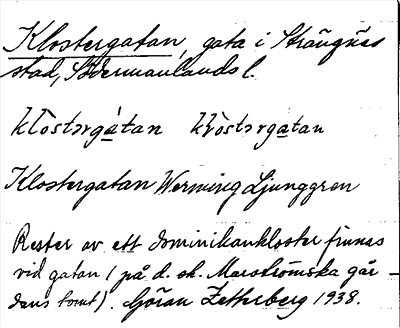 Klostergatan, gata i Strängnäs
stad, Södermanlands l.
klòstərgàtan klòstərgatan
Klostergatan Werming Ljunggren
Rester av ett dominikankloster finnas
vid gatan (på d. sk. Marströmska går-
dens tomt). Göran Zetherberg 1938.